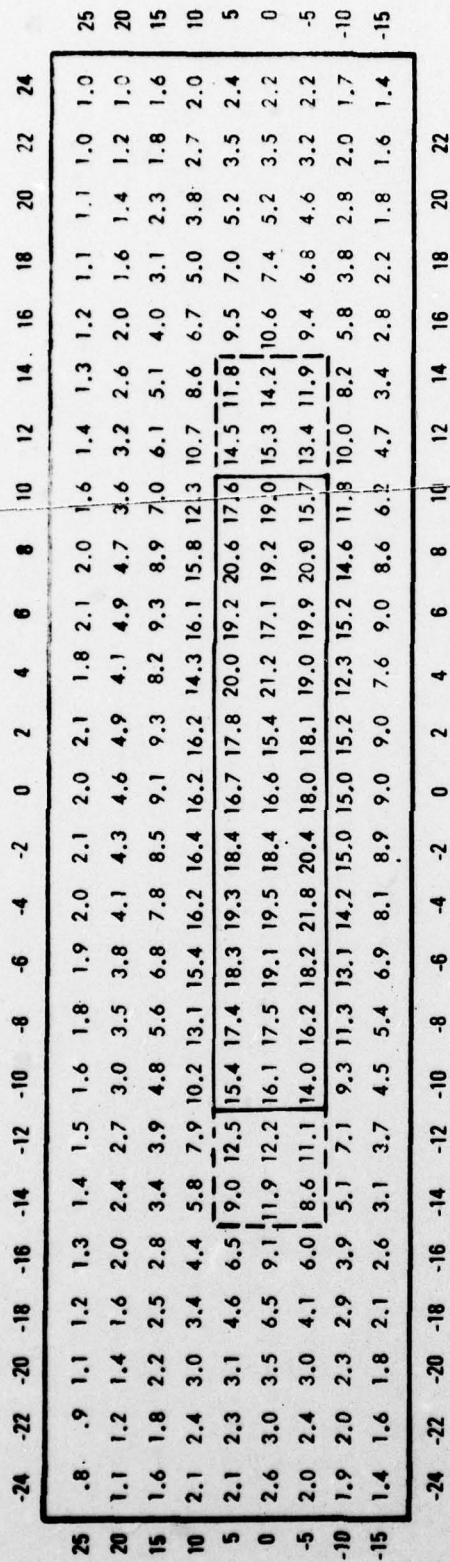 -24 -22 -20 -18 -16 -14 -12 -10 -8 -6 -4 -2 0 2 4 6 8 10 12 14 16 18 20 22 24
25 .8 .9 1.1 1.2 1.3 1.4 1.5 1.6 1.8 1.9 2.0 2.1 2.0 2.1 1.8 2.1 2.0 1.6 1.4 1.3 1.2 1.1 1.1 1.0 1.0 25
20 1.1 1.2 1.4 1.6 2.0 2.4 2.7 3.0 3.5 3.8 4.1 4.3 4.6 4.9 4.1 4.9 4.7 3.6 3.2 2.6 2.0 1.6 1.4 1.2 1.0 20
15 1.6 1.8 2.2 2.5 2.8 3.4 3.9 4.8 5.6 6.8 7.8 8.5 9.1 9.3 8.2 9.3 8.9 7.0 6.1 5.1 4.0 3.1 2.3 1.8 1.6 15
10 2.1 2.4 3.0 3.4 4.4 5.8 7.9 10.2 13.1 15.4 16.2 16.4 16.2 16.2 14.3 16.1 15.8 12.3 10.7 8.6 6.7 5.0 3.8 2.7 2.0 10
5 2.1 2.3 3.1 4.6 6.5 9.0 12.5 15.4 17.4 18.3 19.3 18.4 16.7 17.8 20.0 19.2 20.6 17.6 14.5 11.8 9.5 7.0 5.2 3.5 2.4 5
0 2.6 3.0 3.5 6.5 9.1 11.9 12.2 16.1 17.5 19.1 19.5 18.4 16.6 15.4 21.2 17.1 19.2 19.0 15.3 14.2 10.6 7.4 5.2 3.5 2.2 0
-5 2.0 2.4 3.0 4.1 6.0 8.6 11.1 14.0 16.2 18.2 21.8 20.4 18.0 18.1 19.0 19.9 20.0 15.7 13.4 11.9 9.4 6.8 4.6 3.2 2.2 -5
-10 1.9 2.0 2.3 2.9 3.9 5.1 7.1 9.3 11.3 13.1 14.2 15.0 15.0 15.2 12.3 15.2 14.6 11.8 10.0 8.2 5.8 3.8 2.8 2.0 1.7 -10
-15 1.4 1.6 1.8 2.1 2.6 3.1 3.7 4.5 5.4 6.9 8.1 8.9 9.0 9.0 7.6 9.0 8.6 6.2 4.7 3.4 2.8 2.2 1.8 1.6 1.4 -15
-24 -22 -20 -18 -16 -14 -12 -10 -8 -6 -4 -2 0 2 4 6 8 10 12 14 16 18 20 22